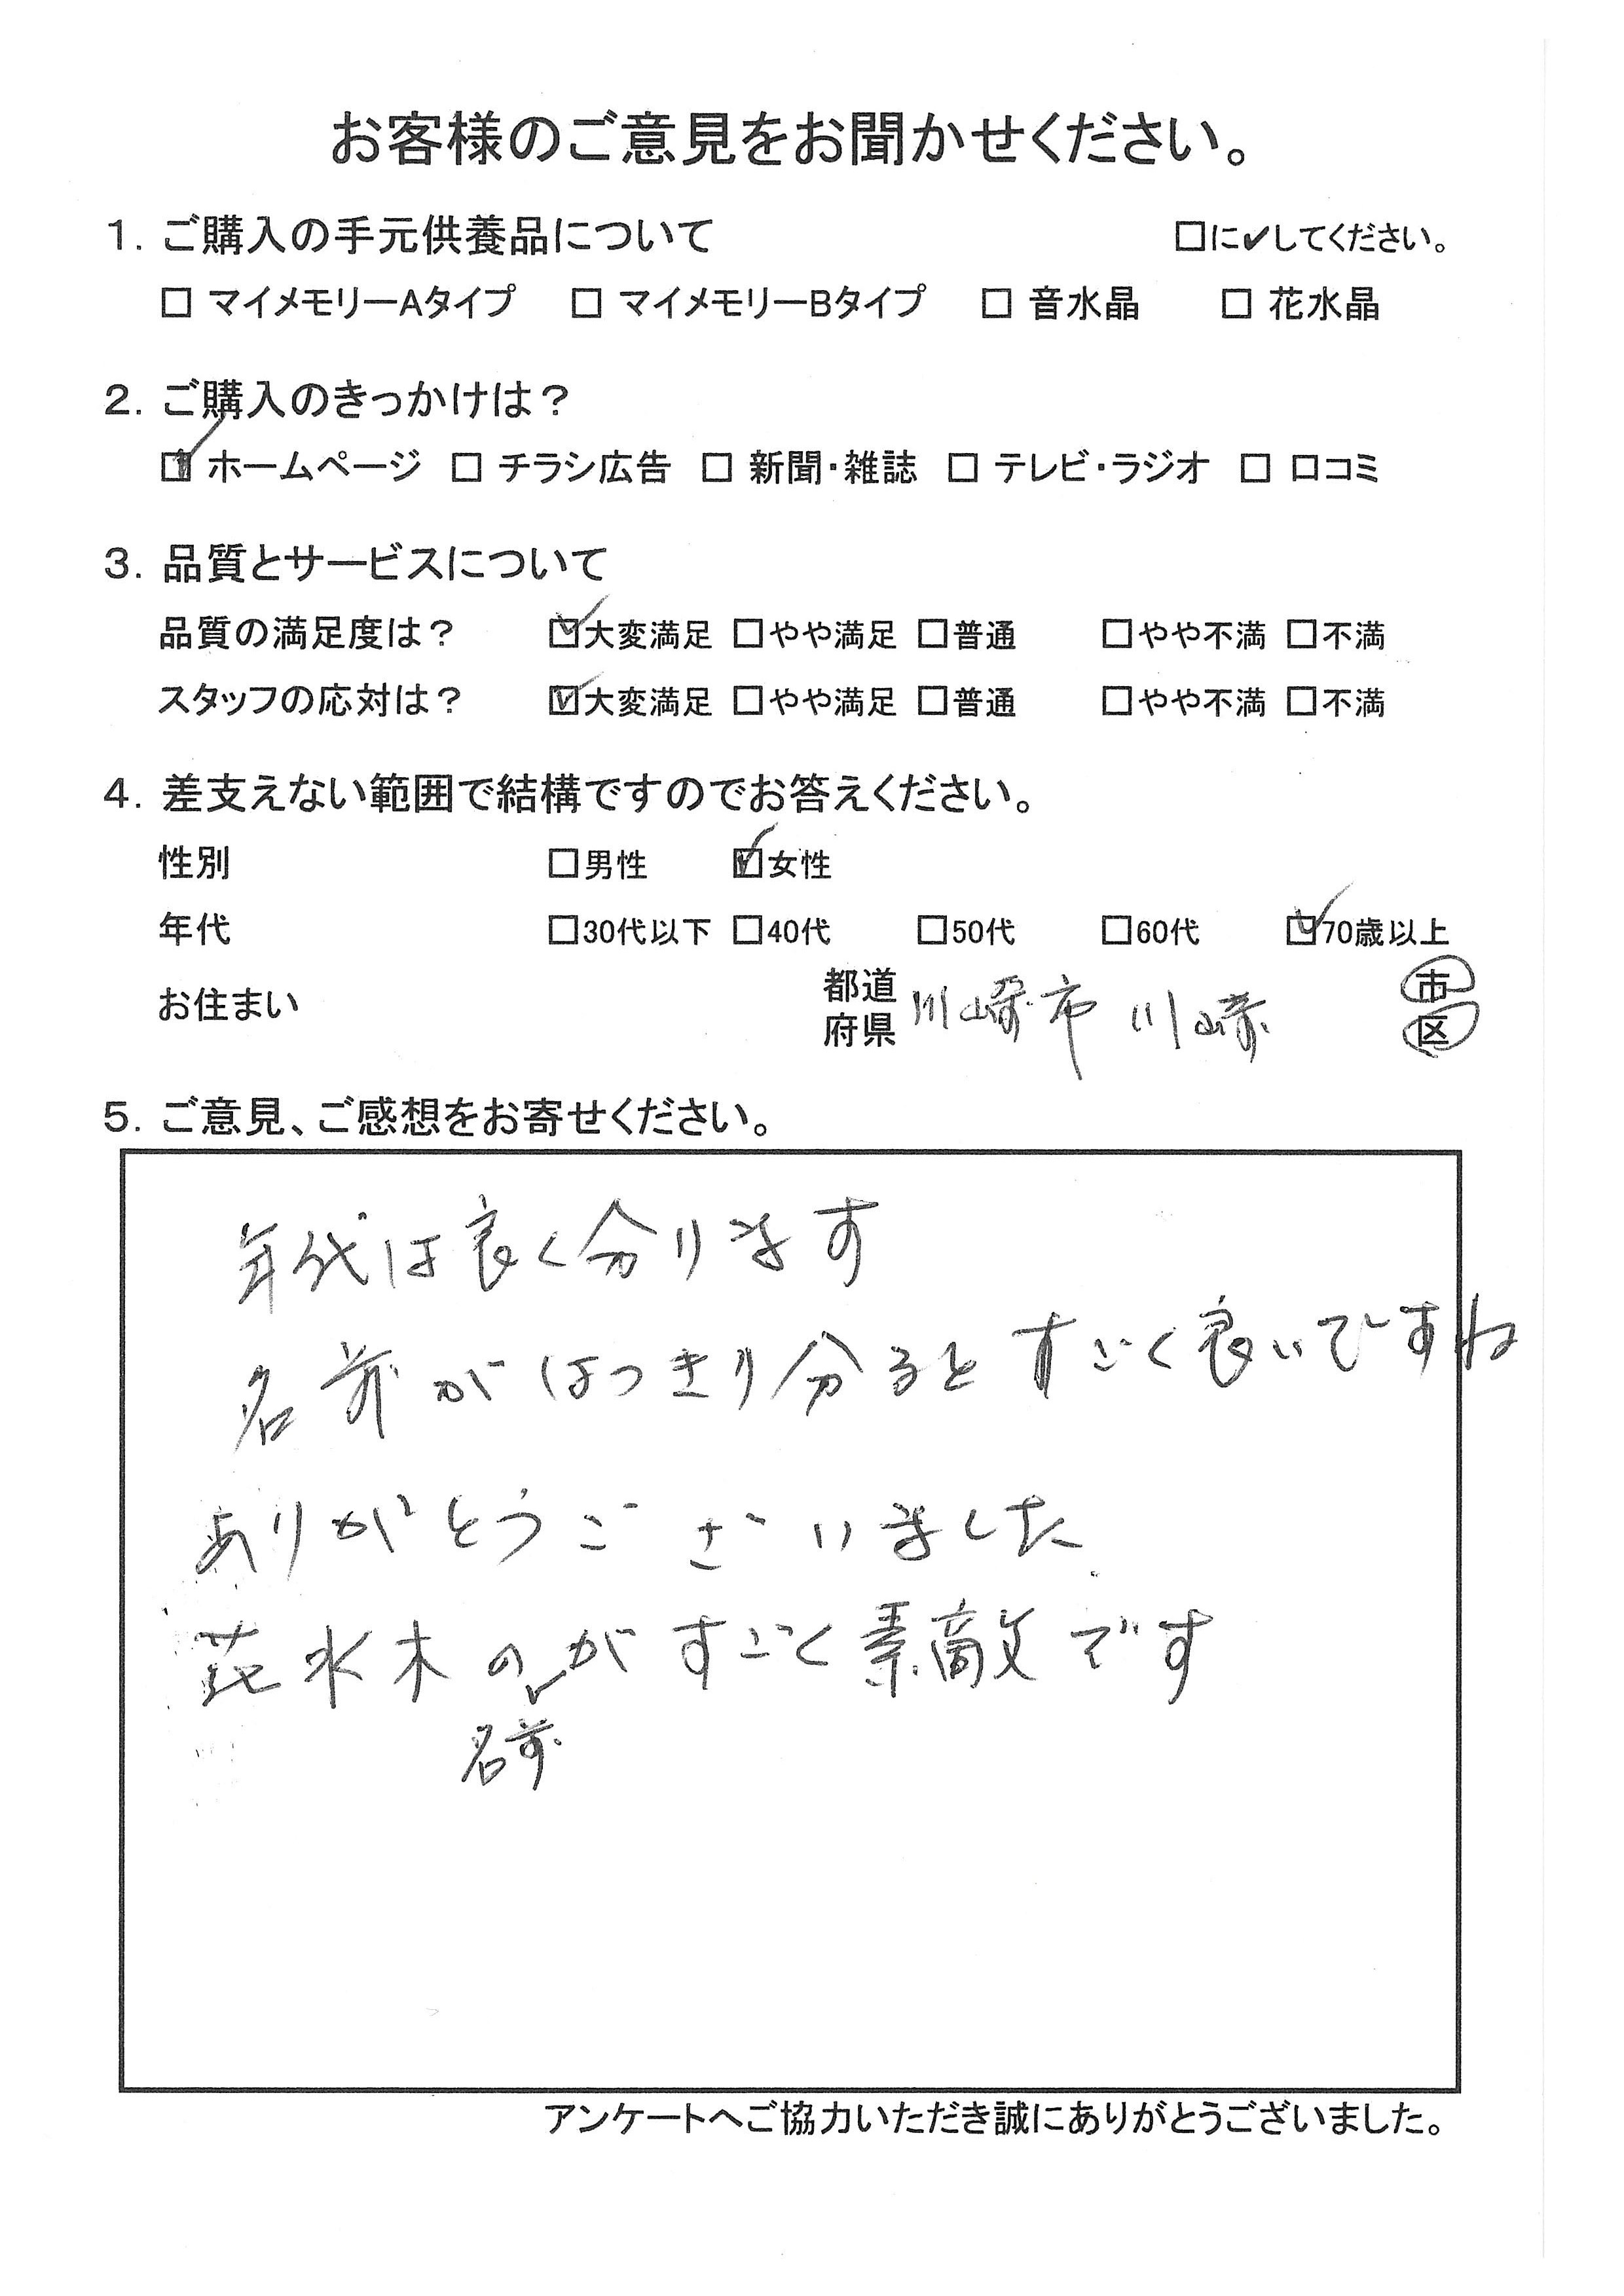 お客様のご意見をお聞かせください。
1. ご購入の手元供養品について □に✔してください。
□ マイメモリーAタイプ □ マイメモリーBタイプ □ 音水晶 □ 花水晶
2. ご購入のきっかけは？
☑ ホームページ □ チラシ広告 □ 新聞・雑誌 □ テレビ・ラジオ □ 口コミ
3. 品質とサービスについて
品質の満足度は？ ☑大変満足 □やや満足 □普通 □やや不満 □不満
スタッフの応対は？ ☑大変満足 □やや満足 □普通 □やや不満 □不満
4. 差支えない範囲で結構ですのでお答えください。
性別 □男性 ☑女性
年代 □30代以下 □40代 □50代 □60代 ☑70歳以上
お住まい 都道府県 川崎市 川崎 市区
5. ご意見、ご感想をお寄せください。
年代は良く分ります
名前がはっきり分るとすごく良いですね
ありがとうございました
花水木のがすごく素敵です
名前
アンケートへご協力いただき誠にありがとうございました。